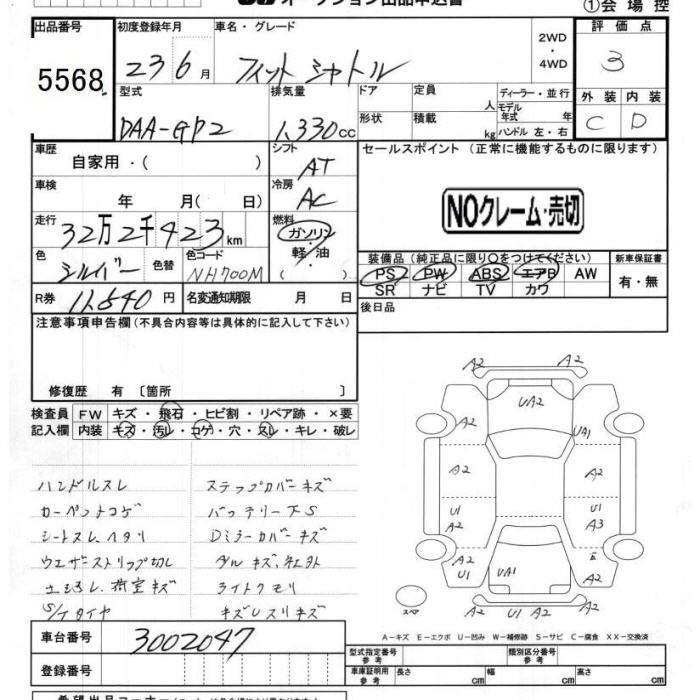 オークション出品申込書
①会場控
出品番号 初度登録年月 車名・グレード 評価点
5568 23 6月 フィット シャトル 2WD・4WD 3
型式 排気量 ドア 定員 人 ディーラー・並行 外装 内装
DAA-GP2 1,330cc 形状 積載 kg モデル年式 年 ハンドル 左・右 C D
車歴 自家用・( ) シフト AT セールスポイント (正常に機能するものに限ります)
車検 年 月( 日) 冷房 AC NOクレーム・売切
走行 32万2千423km 燃料 ガソリン・軽油・( )
色 シルバー 色替 色コード NH700M 装備品(純正品に限り○をつけてください) 新車保証書
PS PW ABS エアB AW 有・無
SR ナビ TV カワ
R券 11,540円 名変通知期限 月 日 後日品
注意事項申告欄(不具合内容等は具体的に記入して下さい)
修復歴 有〔箇所 〕
検査員記入欄 FW キズ・飛石・ヒビ割・リペア跡・×要
内装 キズ・汚レ・コゲ・穴・スレ・キレ・破レ
ハンドルスレ ステップカバーキズ
カーペットコゲ バッテリー不S
シートスレ、ヘタリ Dミラーカバーキズ
ウエザーストリップ切レ
荷室キズ ライトクモリ
S/Tタイヤ キズUスリキズ
A2 A2
UA2
A2 UA1 A2
A2 A2
U1 A2 U1 A3
A2 U1 UA1 E A2
A2 A2
スペア
A－キズ E－エクボ U－凹み W－補修跡 S－サビ C－腐食 XX－交換済
車台番号 3002047 型式指定番号 参考 類別区分番号 参考
登録番号 車庫証明用 参考 長さ cm 幅 cm 高さ cm